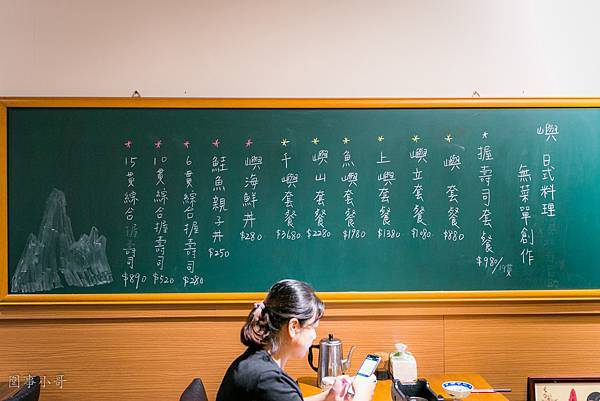 嶼 日式料理
無菜單創作
*握壽司套餐 $980/1位
*嶼 套餐 $880
*嶼立套餐 $1080
*上嶼套餐 $1380
*魚嶼套餐 $1780
*嶼山套餐 $2280
*千嶼套餐 $3680
*嶼海鮮丼 $280
*鮭魚親子丼 $250
*6貫綜合握壽司 $280
*10貫綜合握壽司 $520
*15貫綜合握壽司 $890
圖事小哥